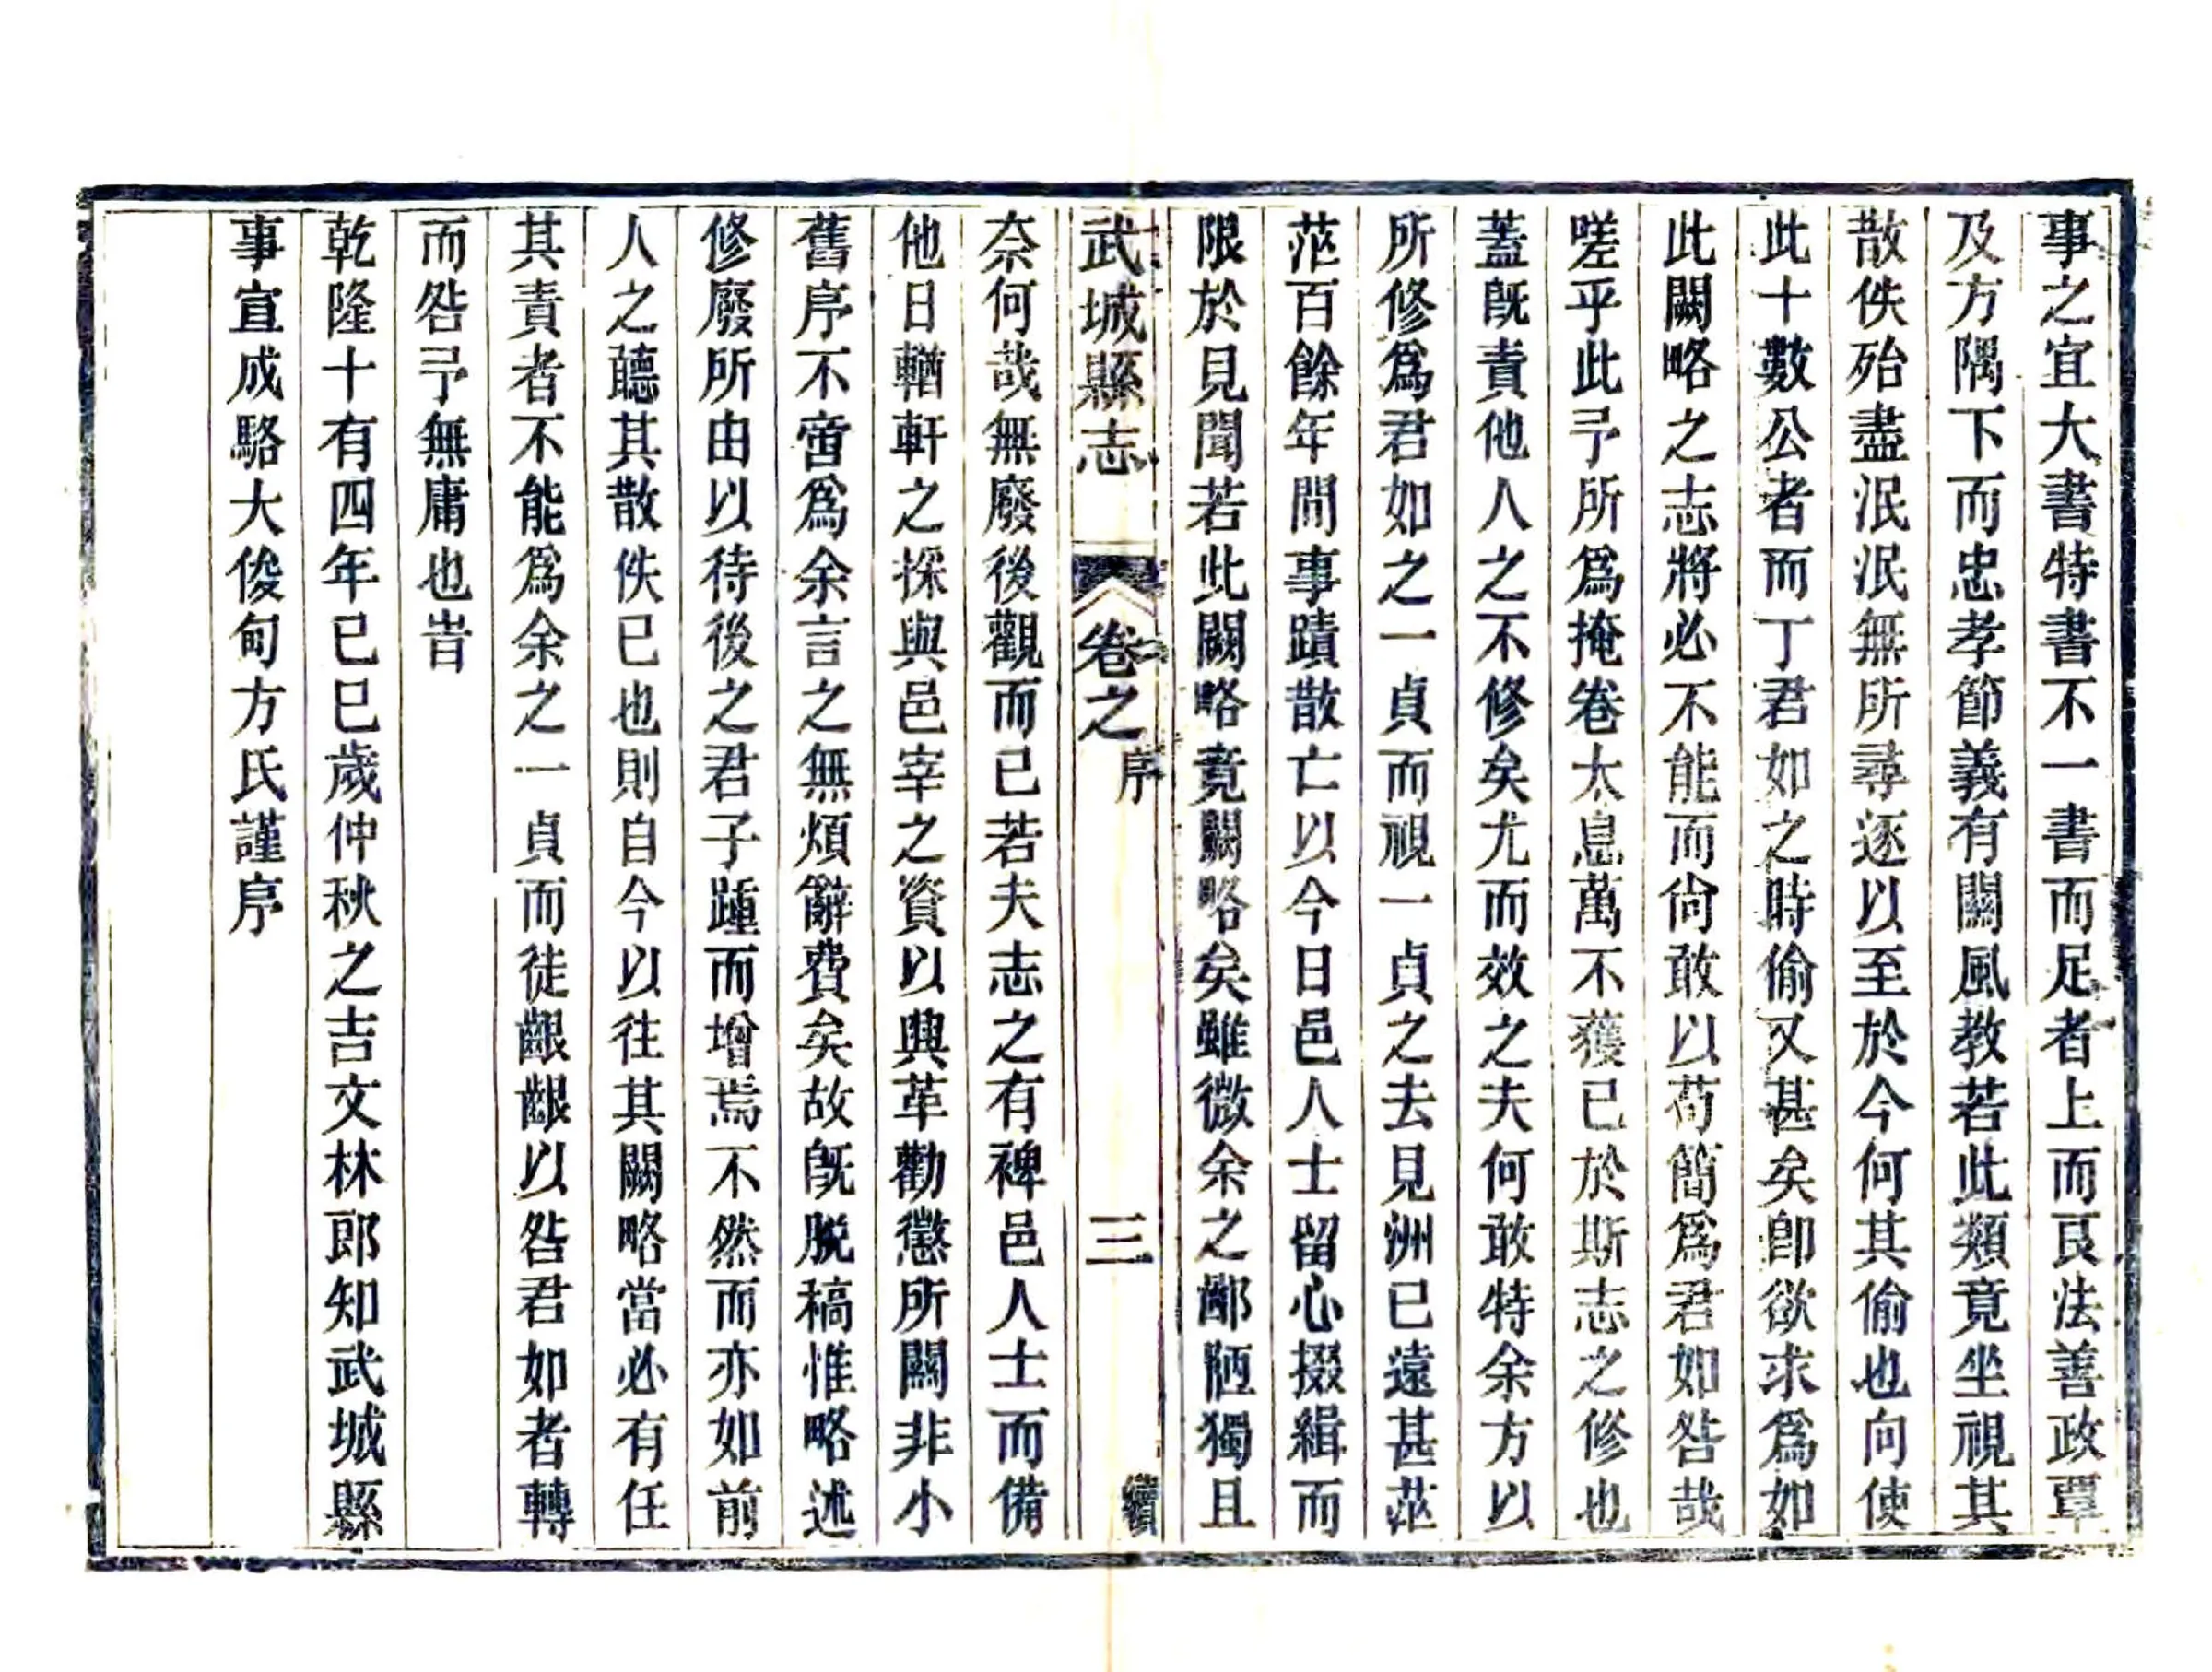 事之宜大書特書不一書而足者上而良法善政覃
及方隅下而忠孝節義有關風教若此類竟坐視其
散佚殆盡泯泯無所尋逐以至於今何其偷也向使
此十數公者而丁君如之時偷又甚矣卽欲求爲如
此闕略之志將必不能而尙敢以苟簡爲君如咎哉
嗟乎此予所爲掩卷太息萬不獲已於斯志之修也
蓋旣責他人之不修矣尤而效之夫何敢特余方以
所修爲君如之一貞而視一貞之去見洲已遠甚茫
茫百餘年間事蹟散亡以今日邑人士留心掇緝而
限於見聞若此闕略竟闕略矣雖微余之鄙陋獨且
武城縣志
卷之
序
三
續
奈何哉無廢後觀而已若夫志之有裨邑人士而備
他日輶軒之採與邑宰之資以興革勸懲所關非小
舊序不啻爲余言之無煩辭費矣故旣脫稿惟略述
修廢所由以待後之君子踵而增焉不然而亦如前
人之聽其散佚已也則自今以往其闕略當必有任
其責者不能爲余之一貞而徒齦齦以咎君如者轉
而咎予無庸也旹
乾隆十有四年己巳歲仲秋之吉文林郎知武城縣
事宜成駱大俊甸方氏謹序